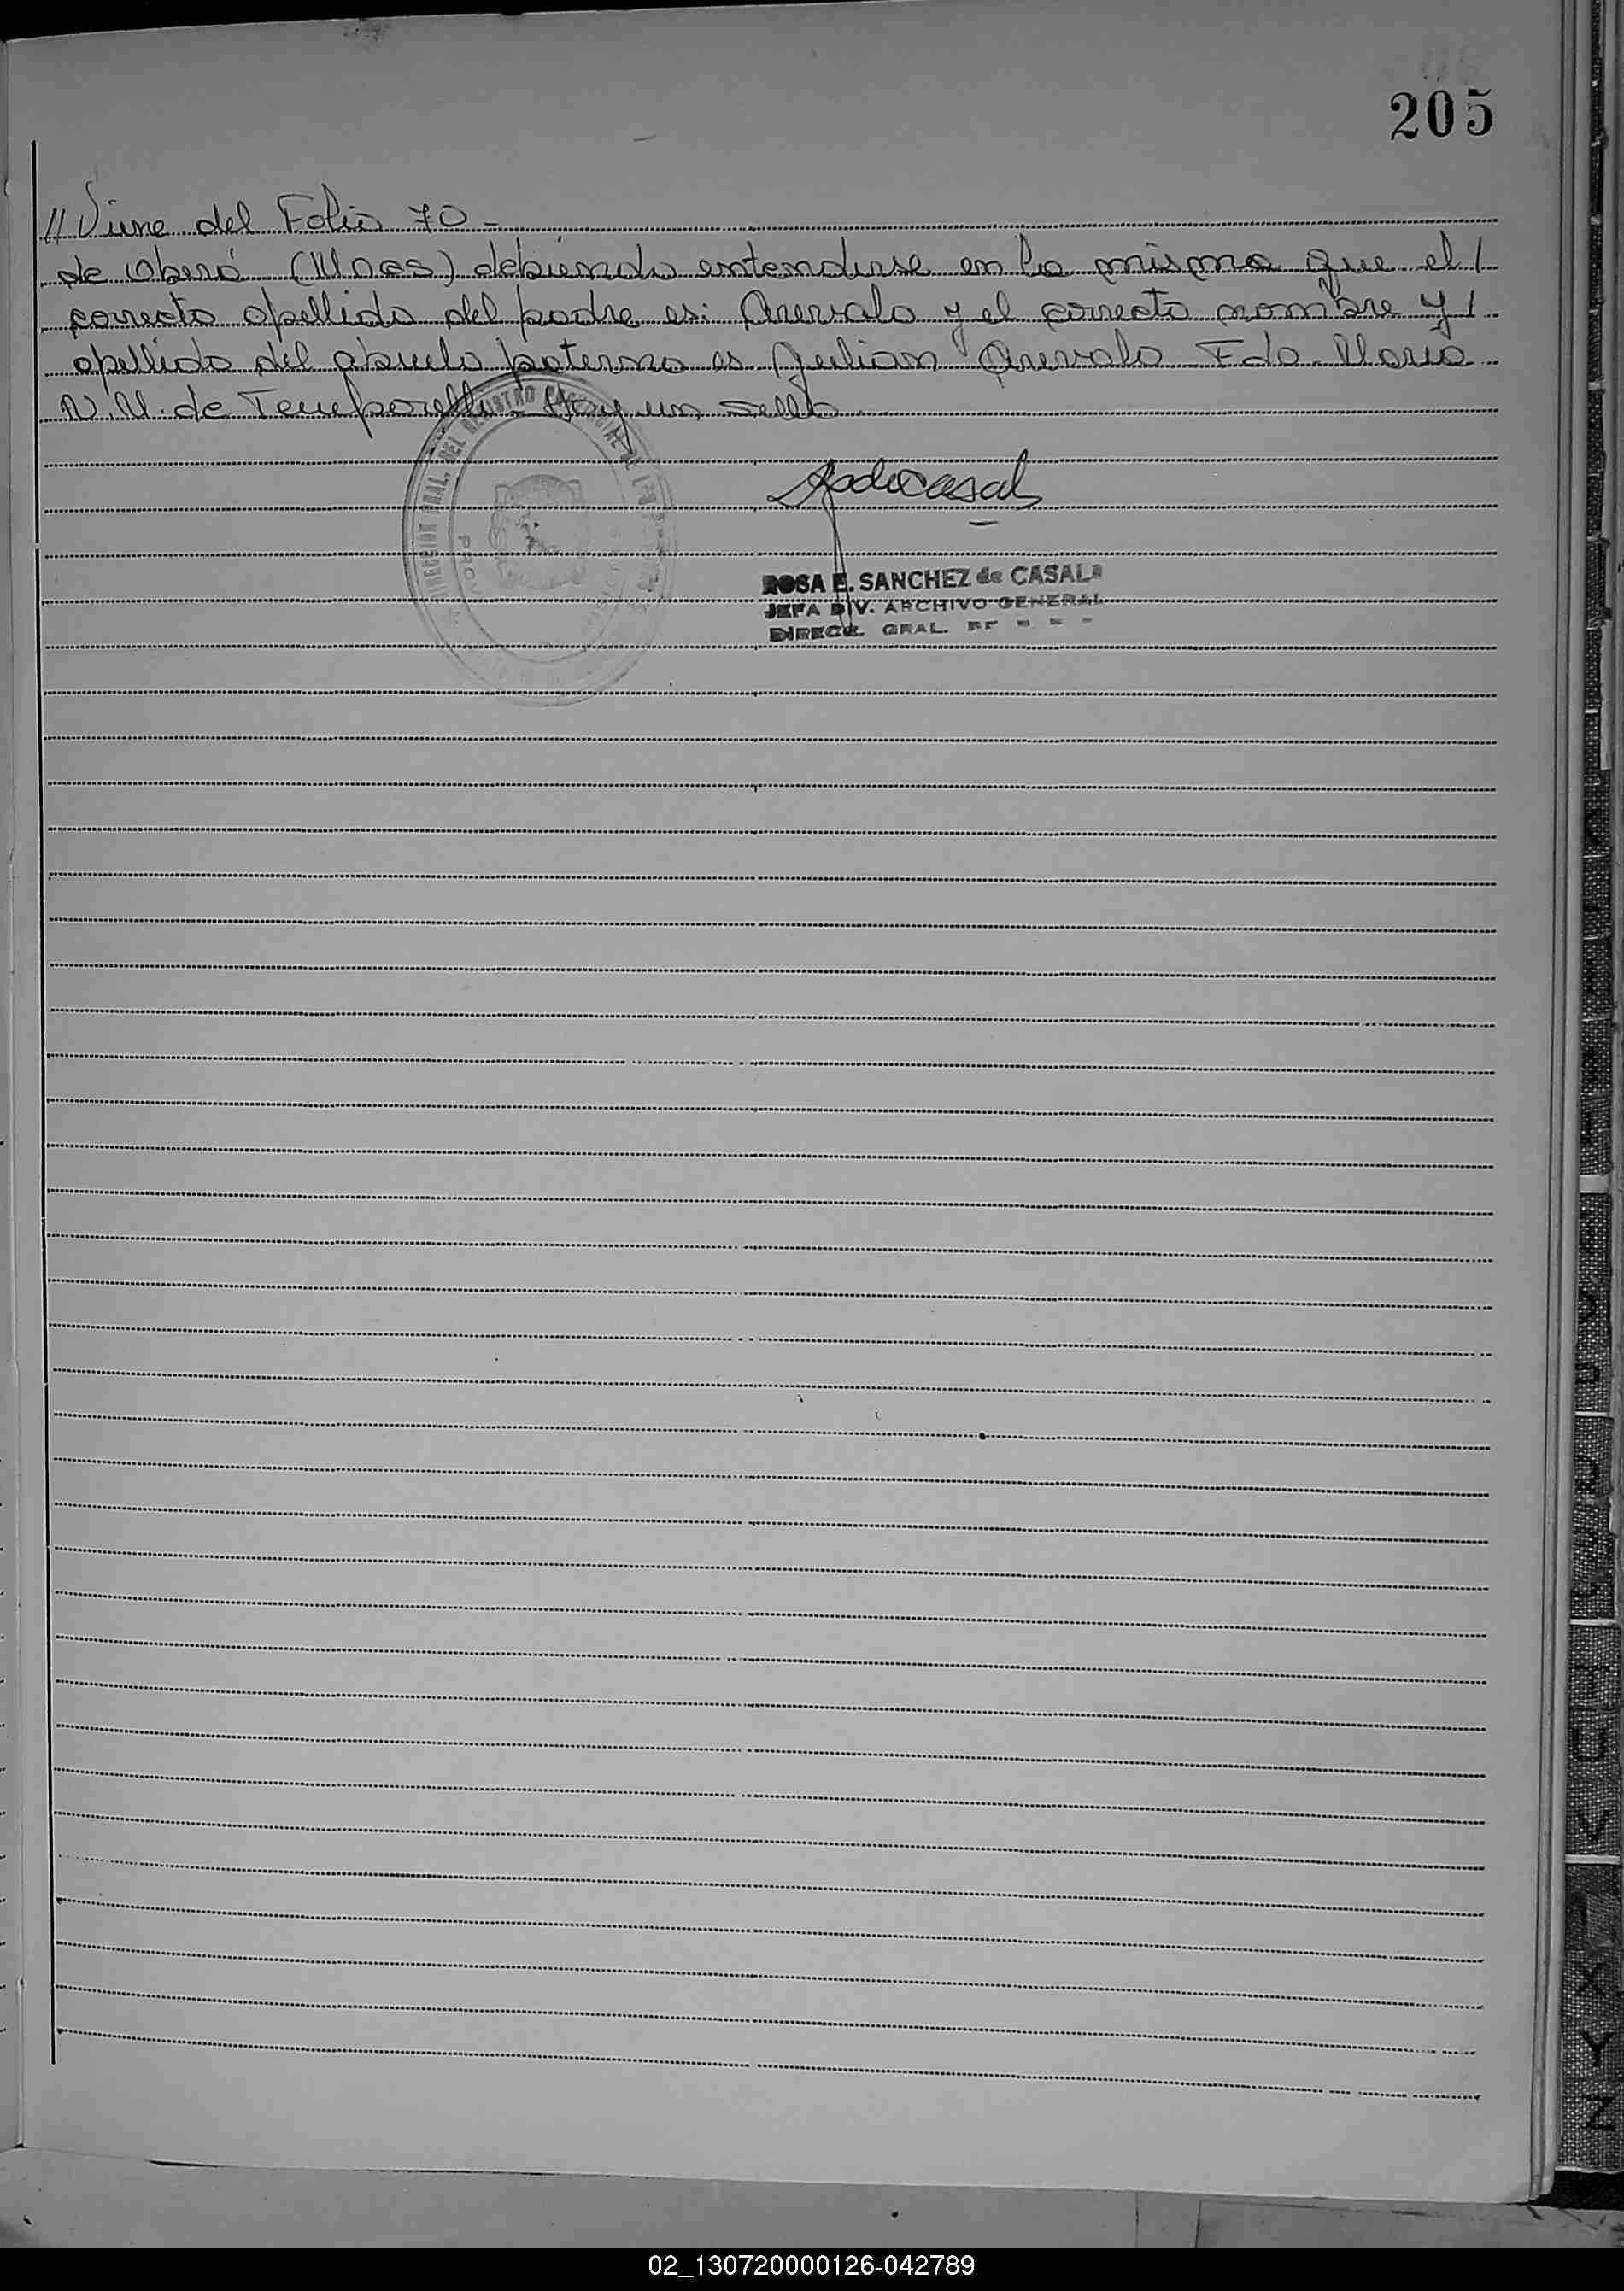 205
// Viene del Folio 70 -
de Oberá (Mnes) debiendo entenderse en la misma que el /
correcto apellido del padre es: Arevalo y el correcto nombre y /
apellido del abuelo paterno es Julian Arevalo Fdo. Maria
N. N. de - Hay un sello
DIRECCION GRAL. DEL REGISTRO
PROV
ROSA E. SANCHEZ de CASALA
JEFA DIV. ARCHIVO GENERAL
DIRECC. GRAL.
T
U
V
X
Y
Z
02_130720000126-042789